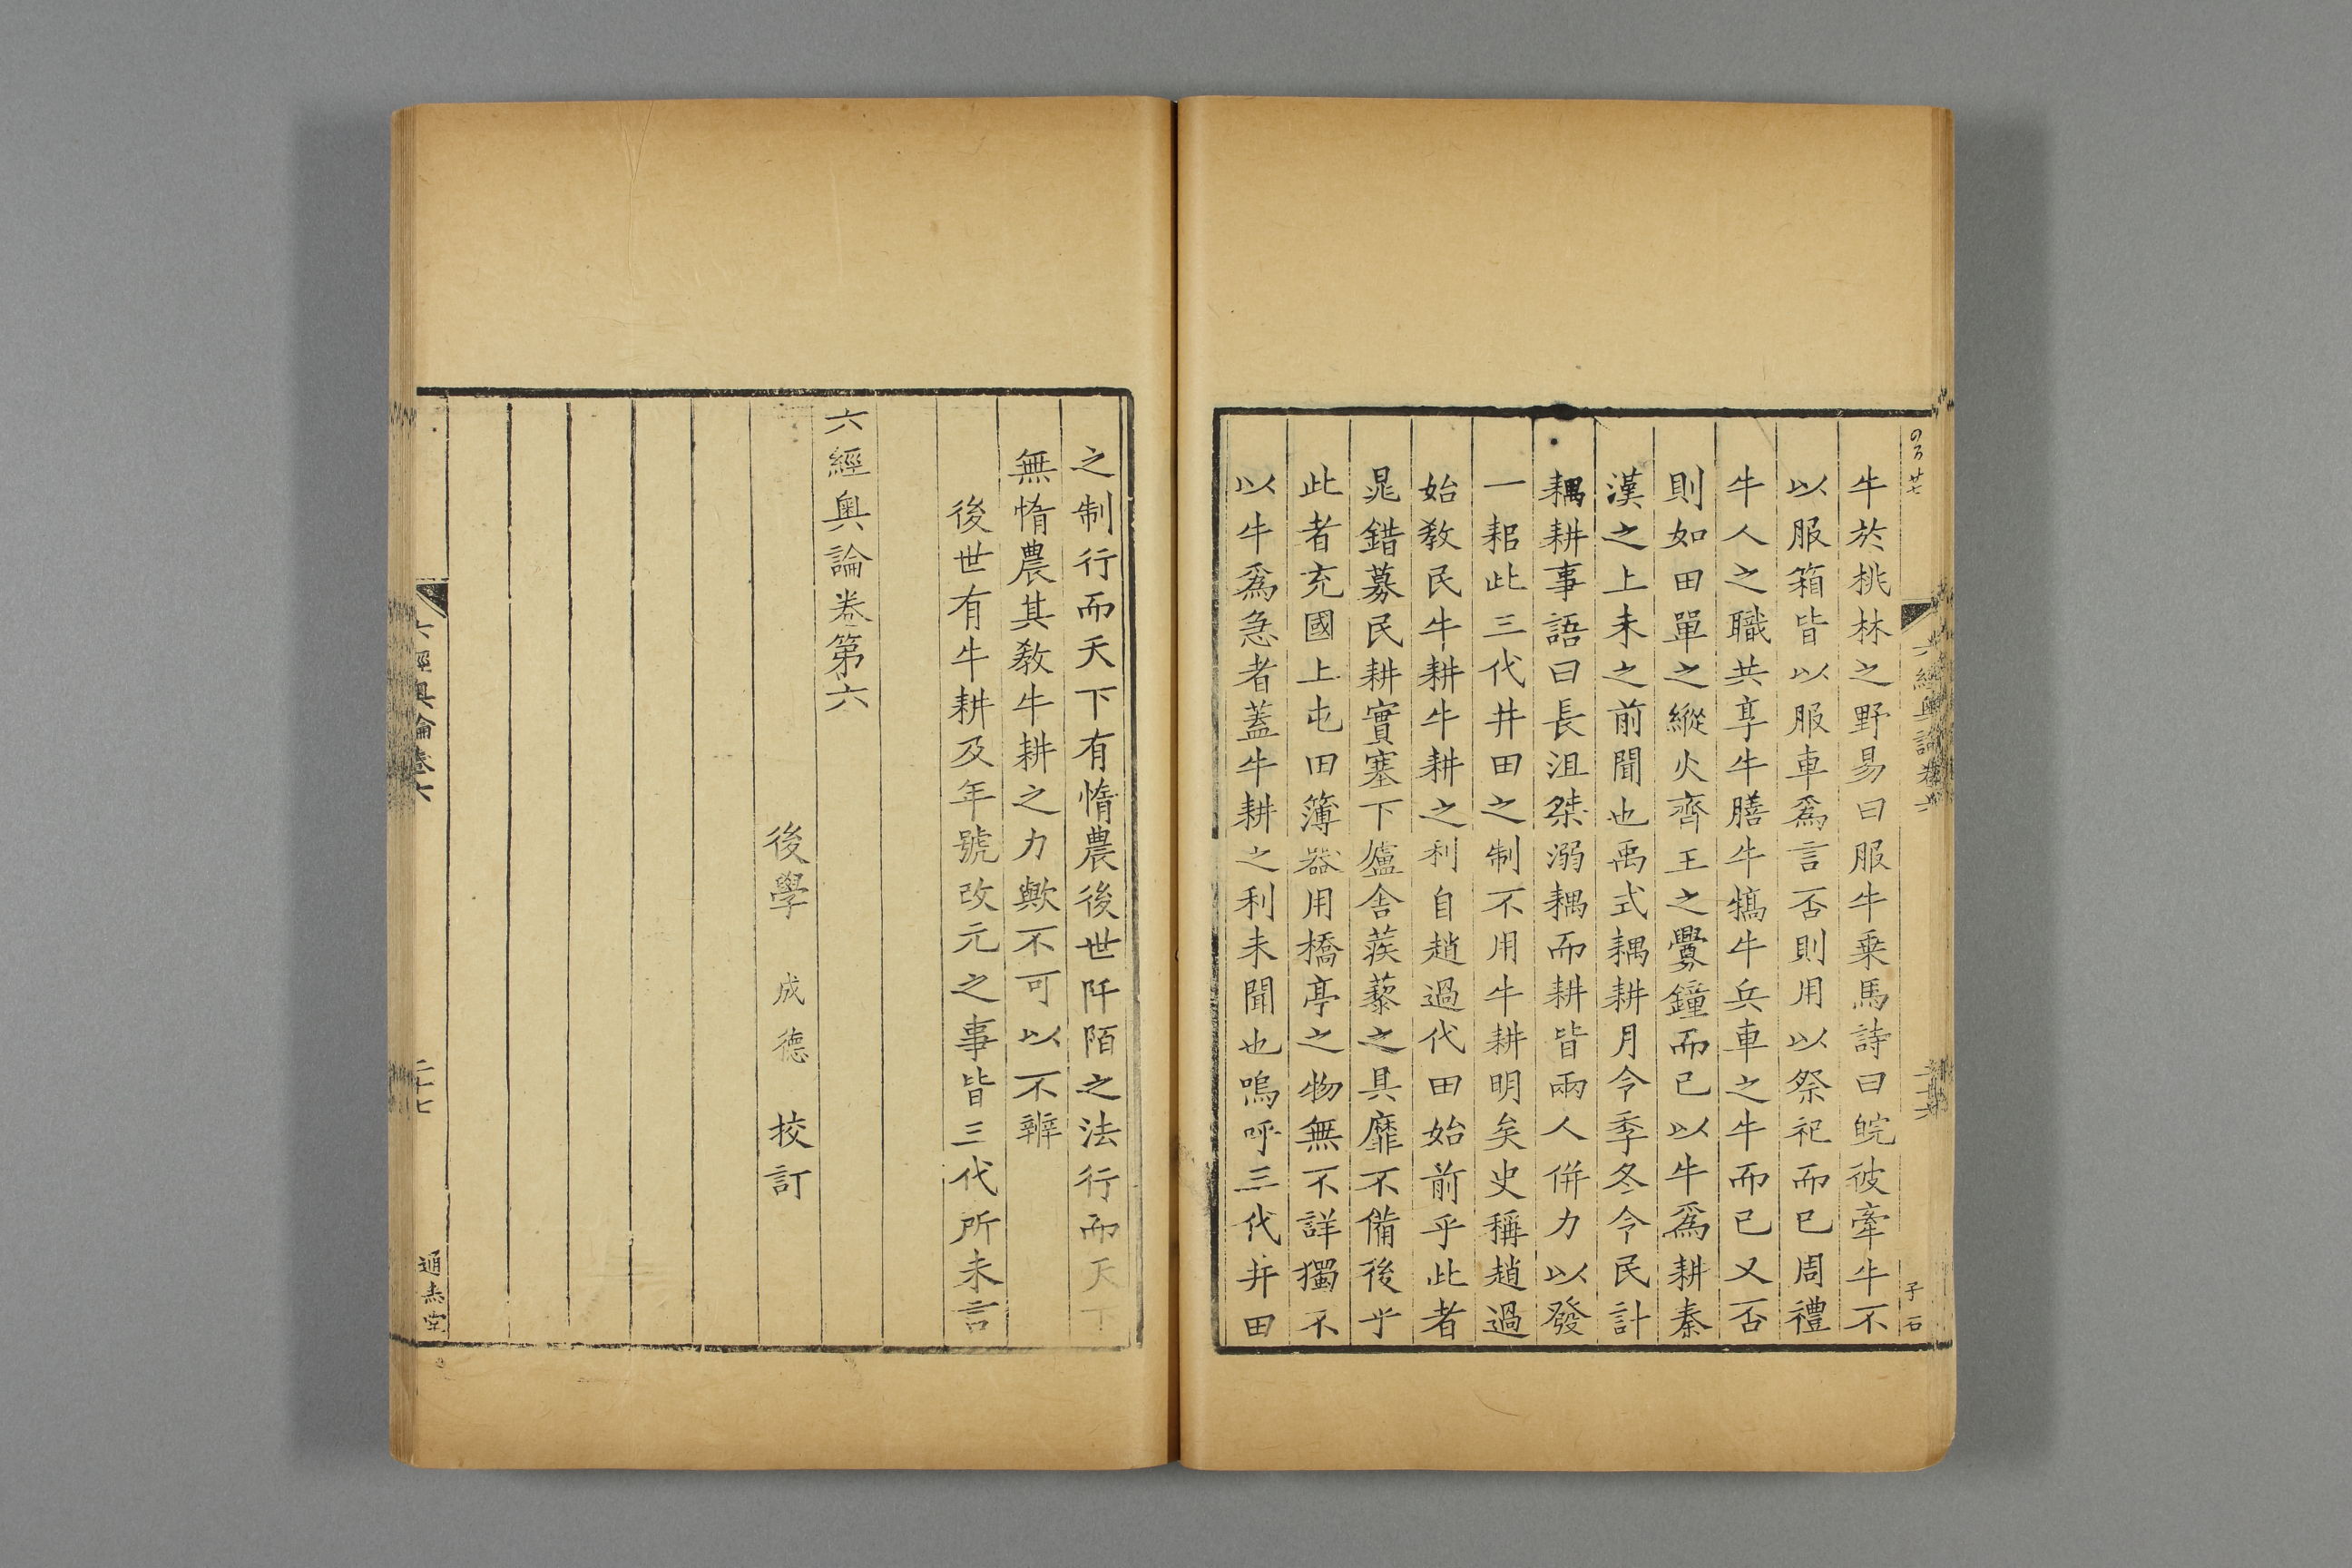 牛於桃林之野易曰服牛乗馬詩曰皖彼牽牛不
以服箱皆以服車爲言否則用以祭祀而巳周禮
牛人之職共享牛膳牛犒牛兵車之牛而已又否
則如田單之縱火齊王之釁鐘而已以牛爲耕秦
漢之上未之前聞也禹式耦耕月令季冬令民計
耦耕事語曰長沮桀溺耦而耕皆兩人併力以發
一耜此三代井田之制不用牛耕明矣史稱趙過
始教民牛耕牛耕之利自趙過代田始前乎此者
晁錯募民耕實塞下廬舍蒺藜之具靡不備後乎
此者充國上屯田簿器用橋亭之物無不詳獨不
以牛爲急者蓋牛耕之利未聞也嗚呼三代井田
六經奧論卷六
二十六
子石
之制行而天下有惰農後世阡陌之法行而天下
無惰農其敎牛耕之力歟不可以不辨
後世有牛耕及年號改元之事皆三代所未言
六經奧論卷第六
後學 成德 挍訂
六經奧論卷六
二十七
通志堂